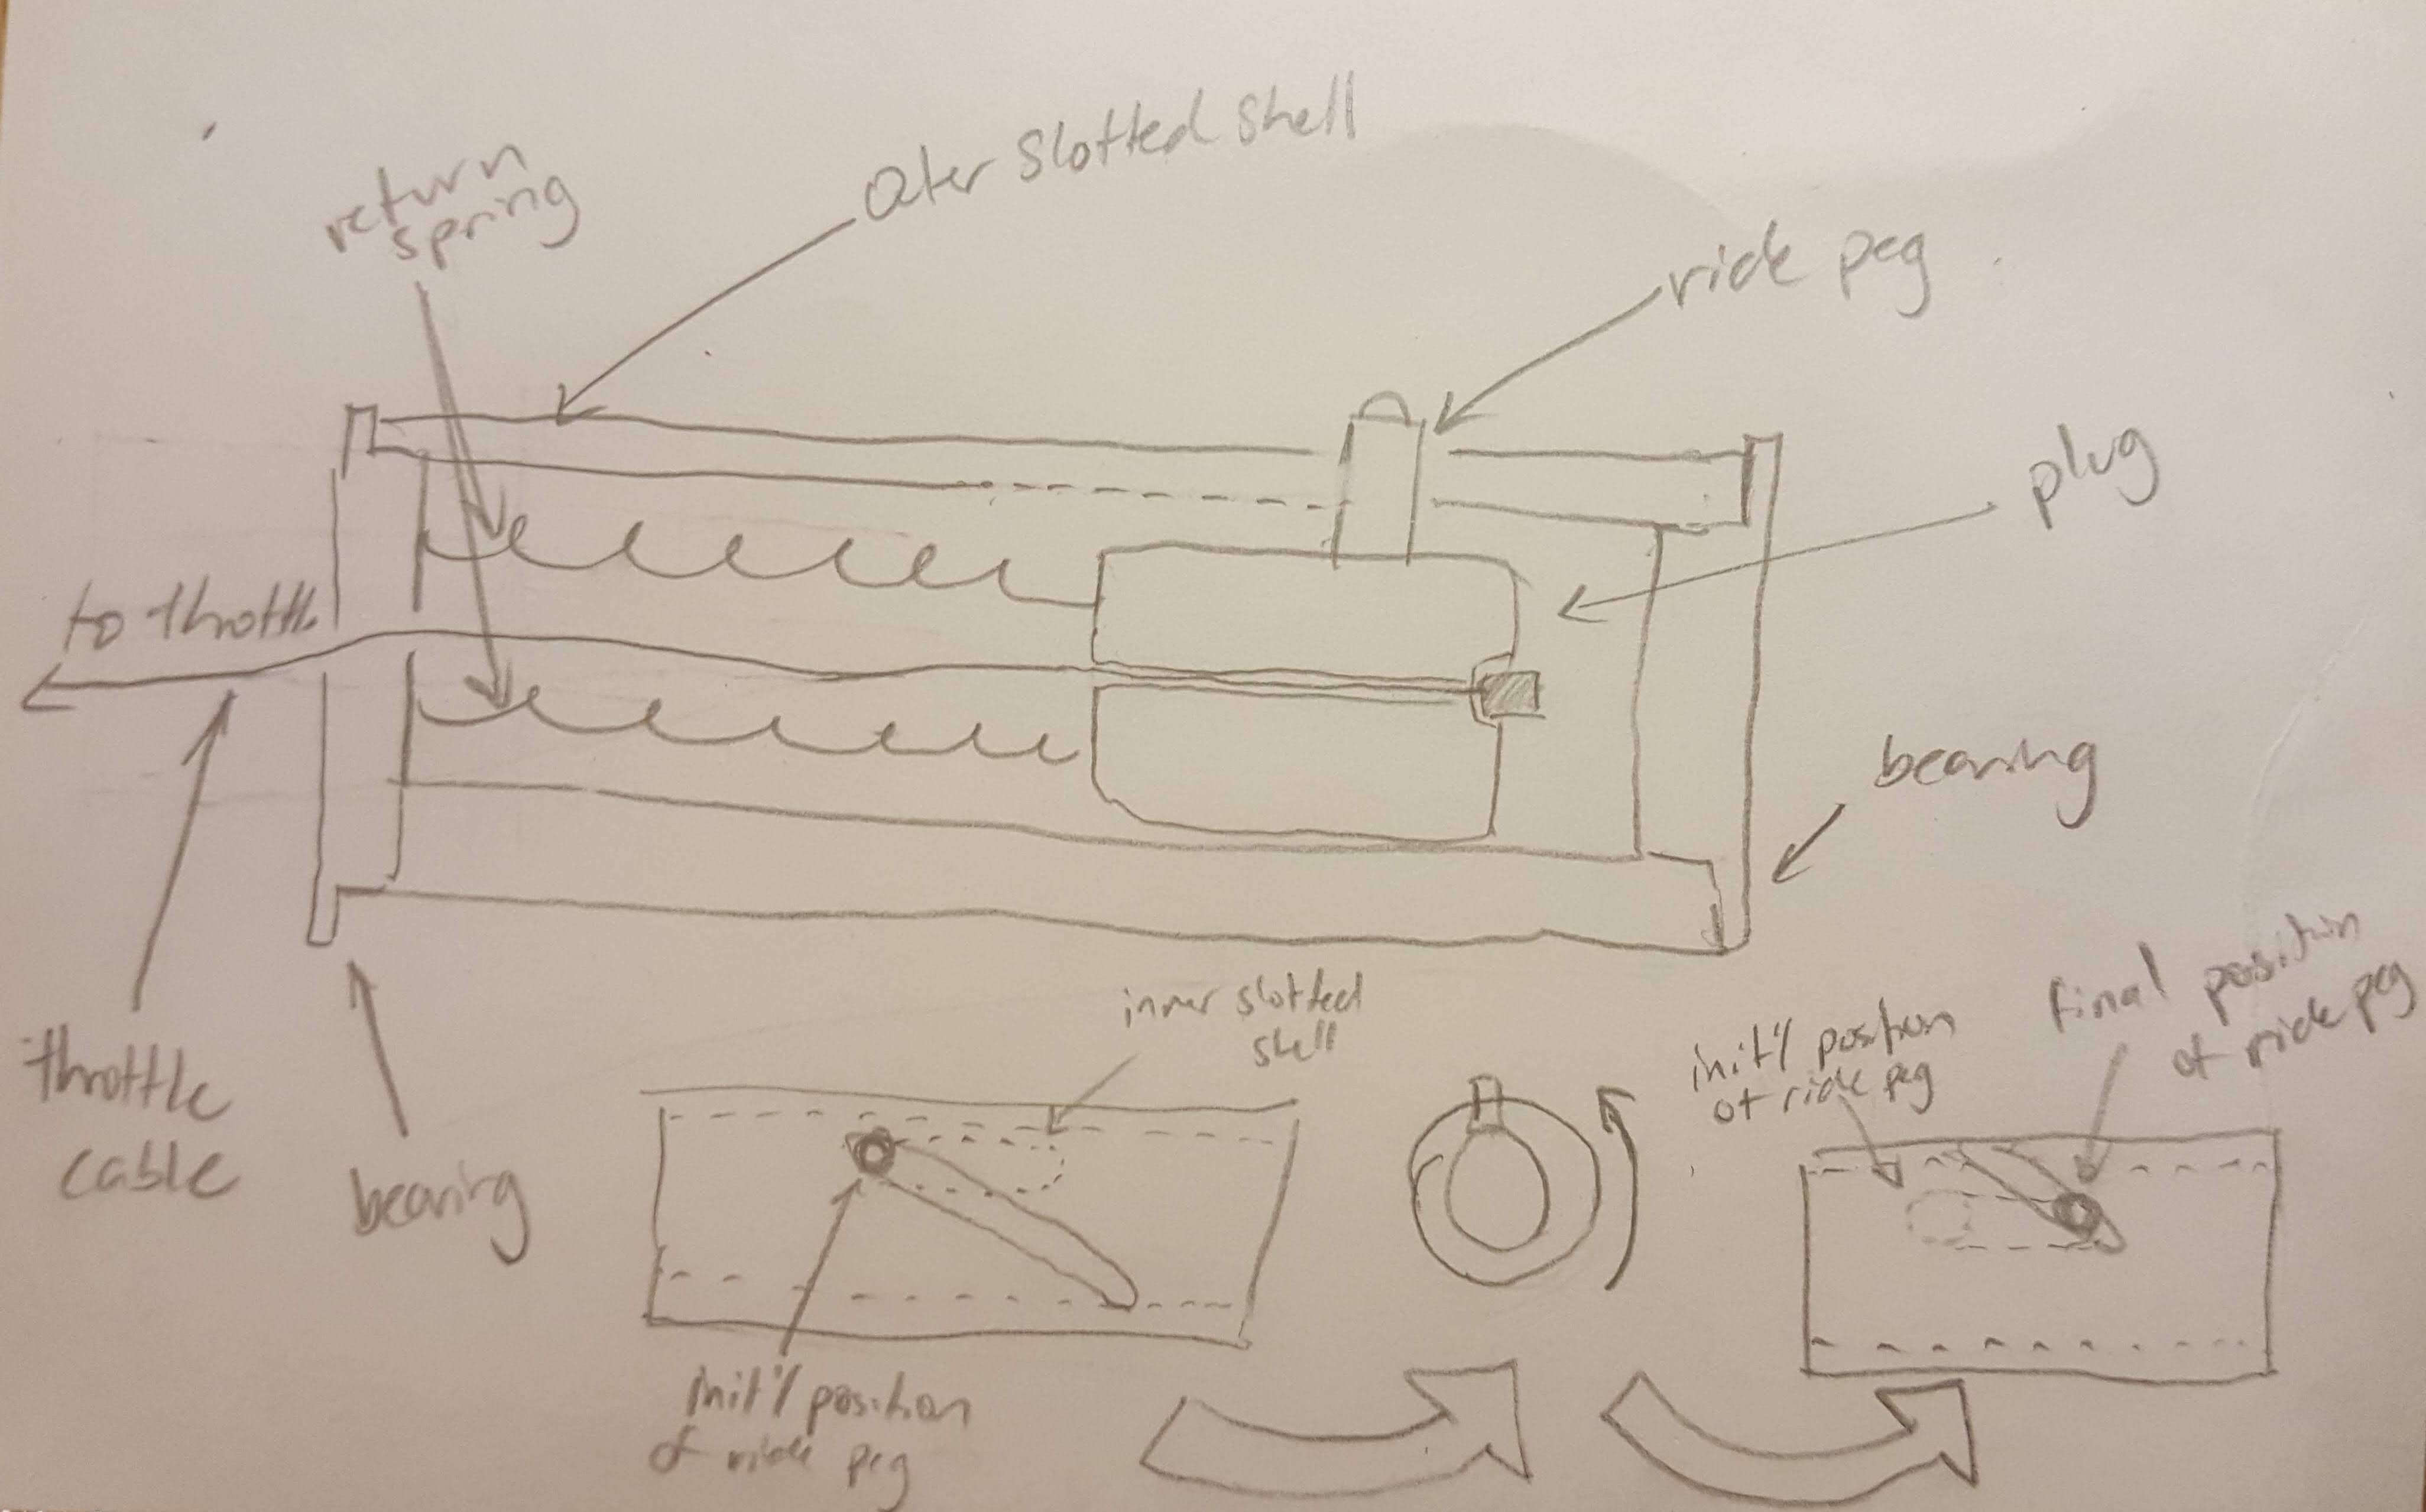 Outer Slotted Shell
return
spring
ride peg
plug
to throttle
bearing
throttle
cable
bearing
inner slotted
shell
init'l position
of ride peg
init'l position
of ride peg
final position
of ride peg